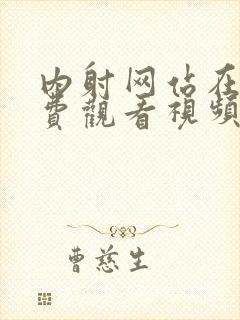 内射网佔在
費觀看視頻
曹慈生